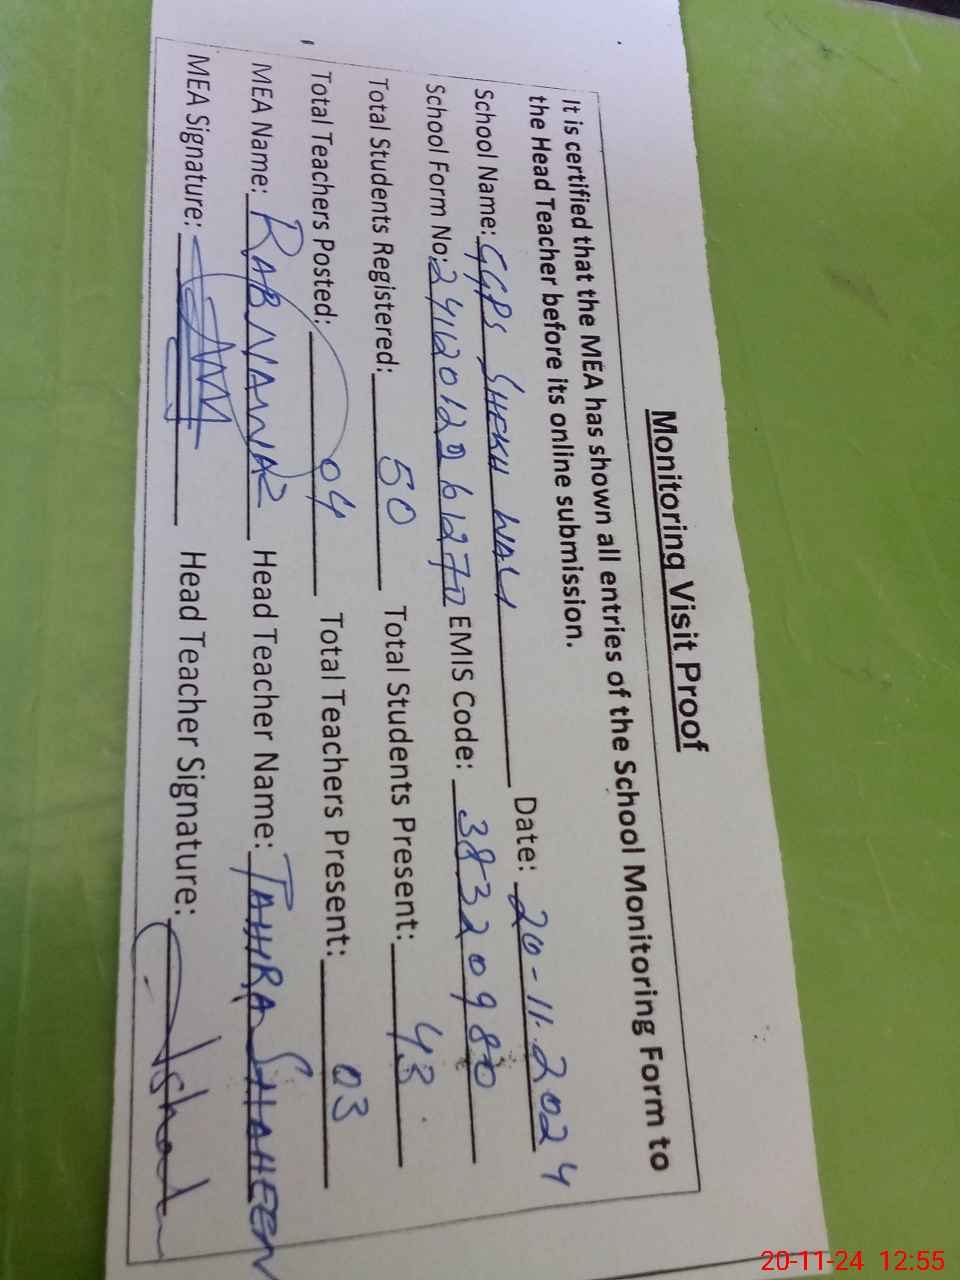 Monitoring Visit Proof
It is certified that the MEA has shown all entries of the School Monitoring Form to
the Head Teacher before its online submission.
School Name: GGPS SHEKH WALI Date: 20-11-2024
School Form No: 2412012961270 EMIS Code: 38320980
Total Students Registered: 50 Total Students Present: 43
Total Teachers Posted: 04 Total Teachers Present: 03
MEA Name: RAB NAWAZ Head Teacher Name: TAHIRA SHAHEEN
MEA Signature: Head Teacher Signature:
20-11-24 12:55